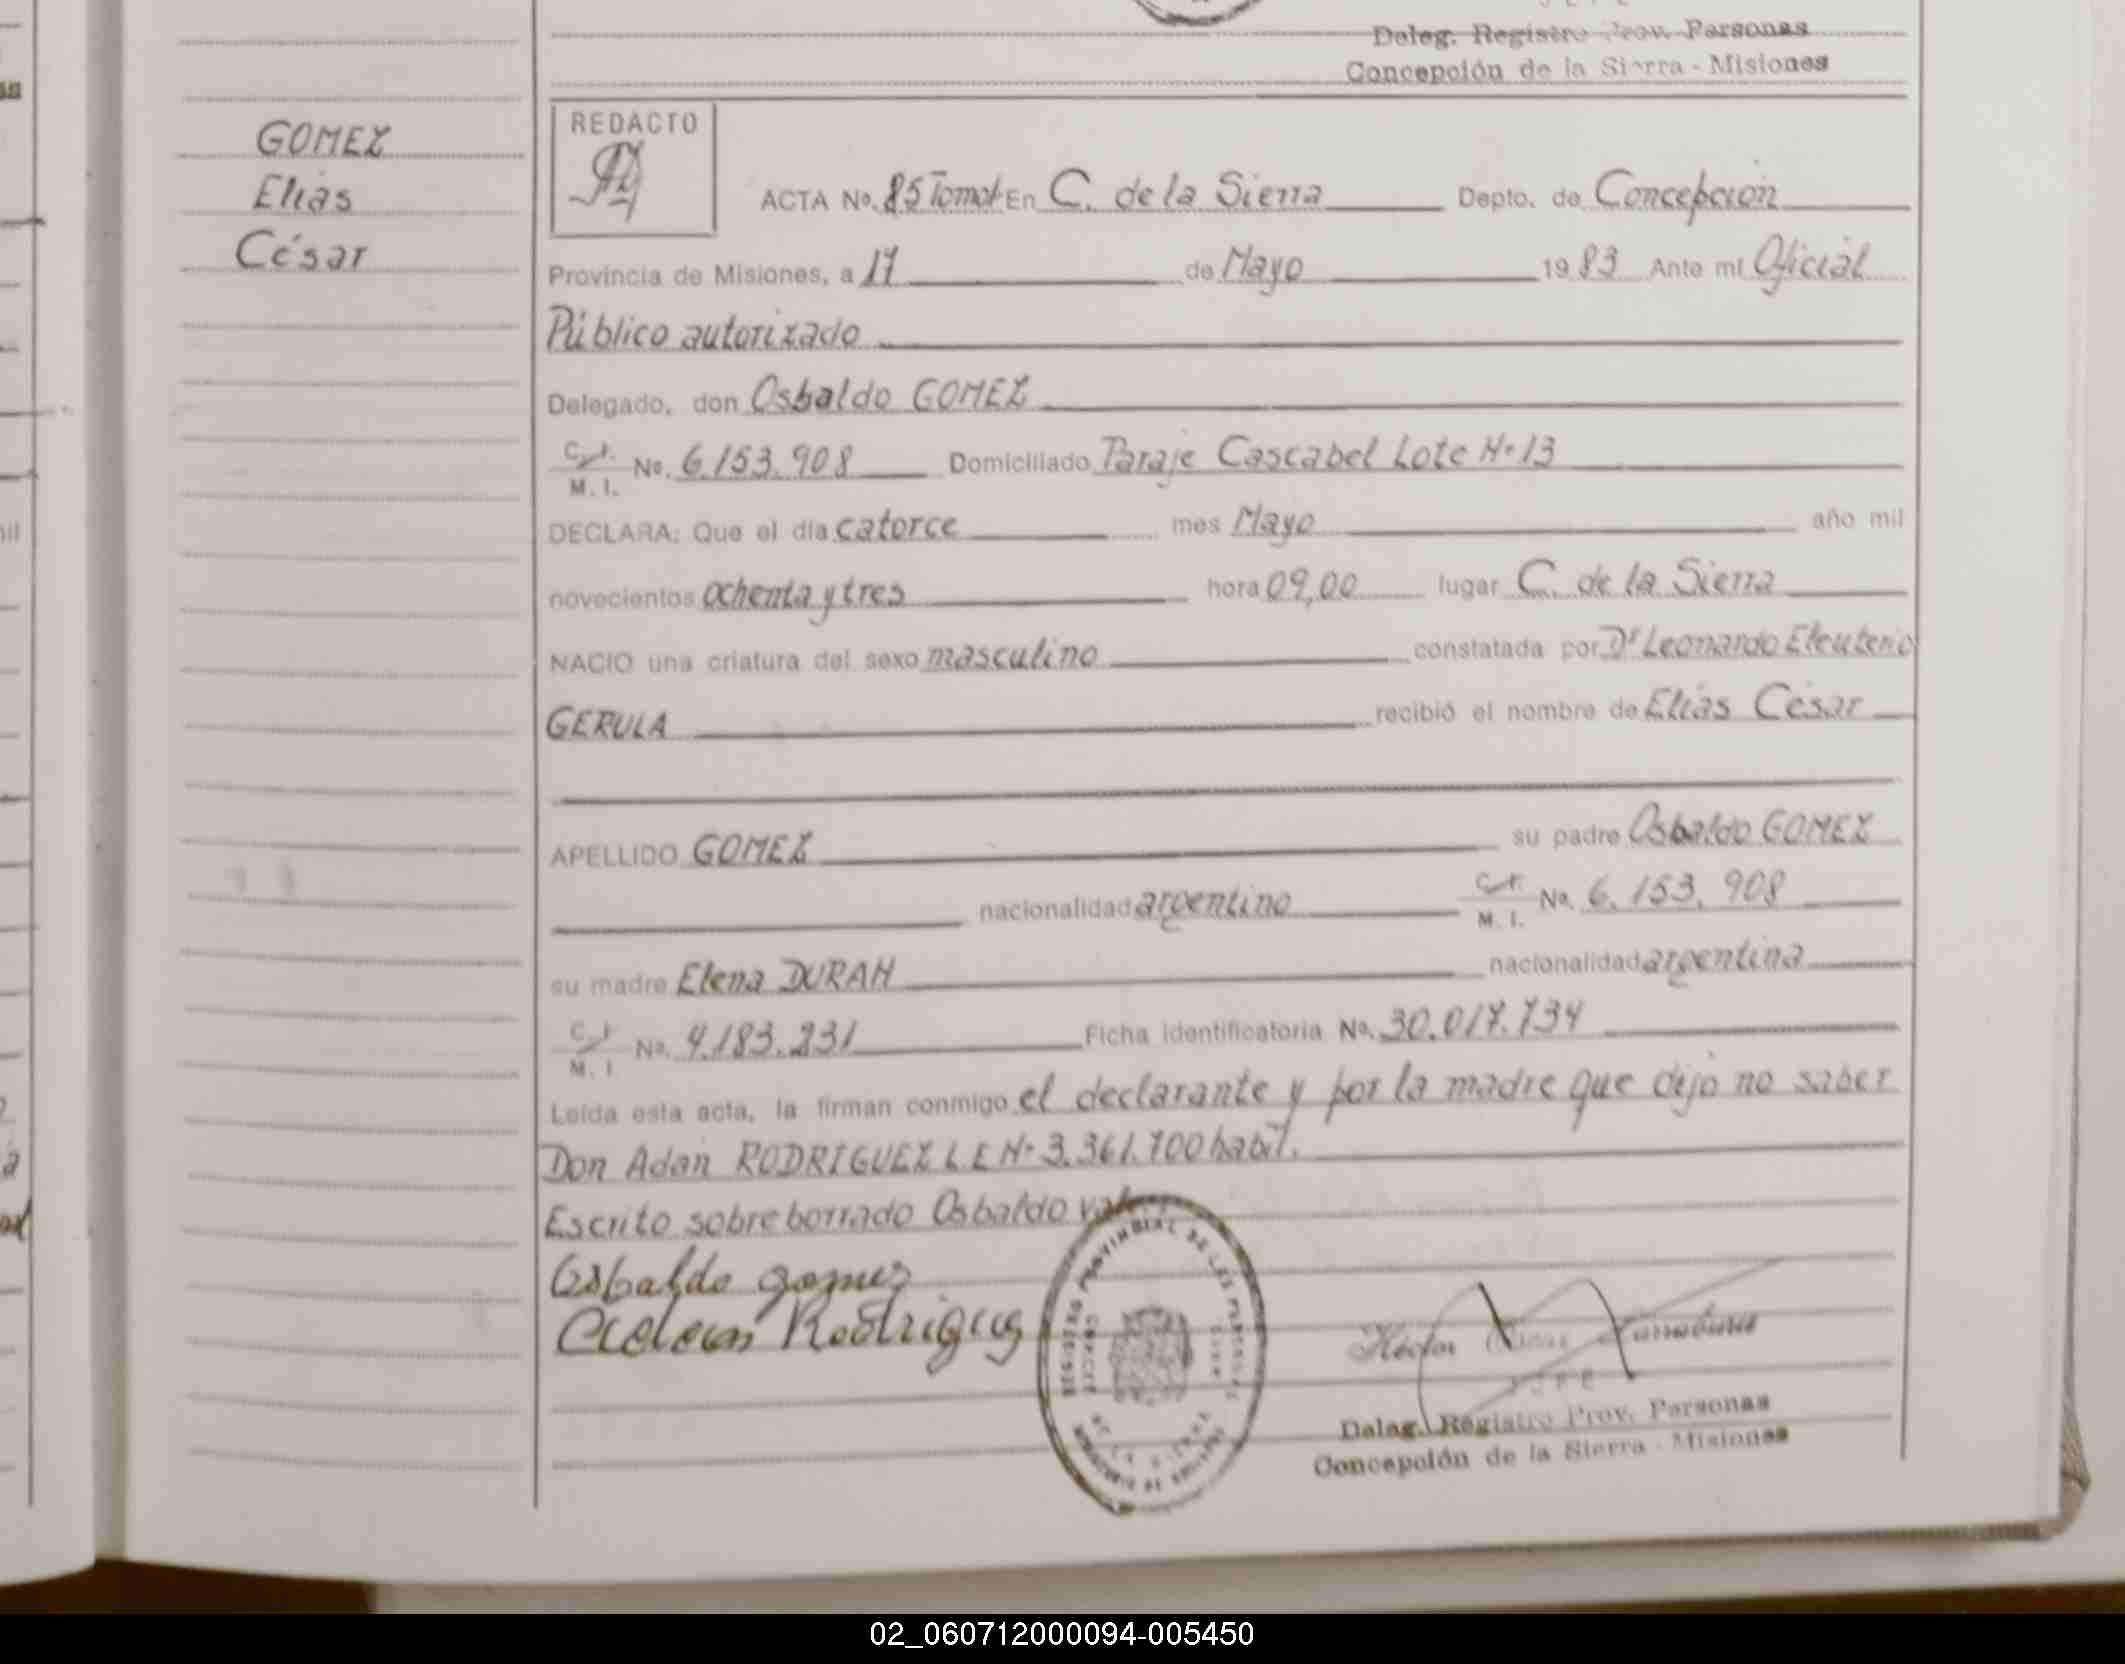 Deleg. Registro Prov. Personas
Concepción de la Sierra - Misiones
GOMEZ
Elías
César
REDACTO
ACTA No. 85 Tomo I En C. de la Sierra Depto. de Concepción
Provincia de Misiones, a 17 de Mayo 1983 Ante mí Oficial
Público autorizado
Delegado, don Osbaldo GOMEZ
C. I. / M. I. No. 6.153.908 Domiciliado Paraje Cascabel Lote N° 13
DECLARA: Que el día catorce mes Mayo año mil
novecientos ochenta y tres hora 09,00 lugar C. de la Sierra
NACIO una criatura del sexo masculino constatada por Dr Leonardo Eleuterio
GERULA recibió el nombre de Elías César
APELLIDO GOMEZ su padre Osbaldo GOMEZ
nacionalidad argentino C. I. / M. I. No. 6.153.908
su madre Elena DURAN nacionalidad argentina
C. I. / M. I. No. 4.183.231 Ficha identificatoria No. 30.017.734
Leída esta acta, la firman conmigo el declarante y por la madre que dijo no saber
Don Adán RODRIGUEZ L E N° 3.361.700 habil.
Escrito sobre borrado Osbaldo vale
Osbaldo gomez
Rodrigues
REGISTRO PROVINCIAL DE LAS PERSONAS
DE LA SIERRA
Héctor
JEFE
Deleg. Registro Prov. Personas
Concepción de la Sierra - Misiones
02_060712000094-005450